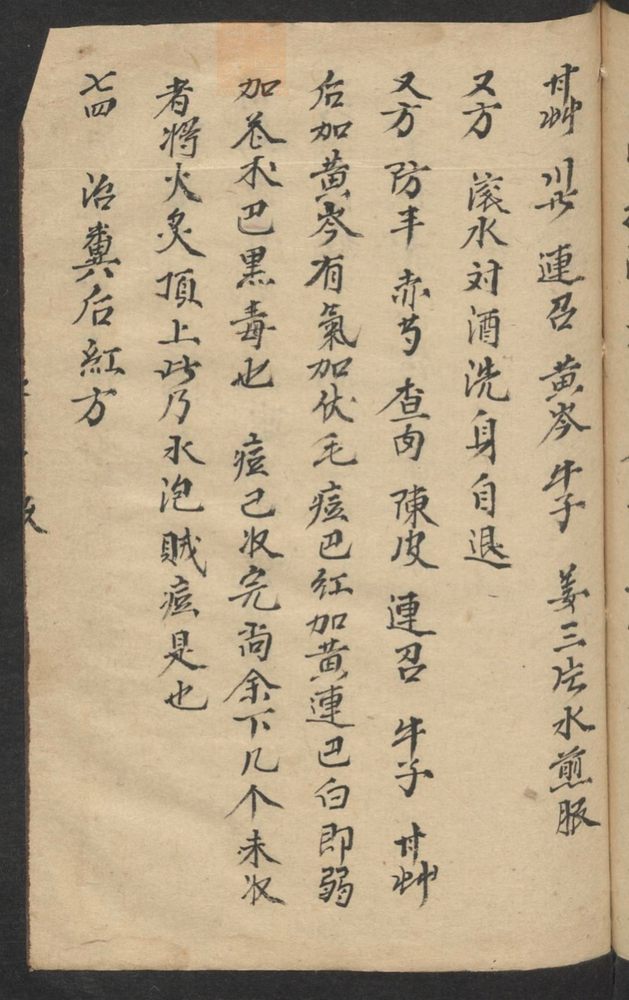 甘艸 川芎 連召 黄岑 牛子 姜三片水煎服
又方 滚水対酒洗身自退
又方 防丰 赤芍 查肉 陳皮 連召 牛子 甘艸
后加黄岑有氣加伏毛痘巴紅加黄連巴白即弱
加苍术巴黑毒也 痘已收完尚余下几个未收
者將火炙頂上此乃水泡賊痘是也
七四 治糞后紅方